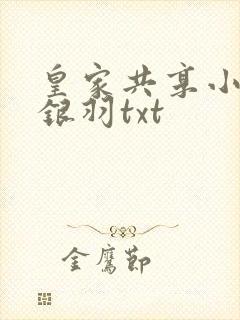 皇家共享小
银羽txt
金鹰节